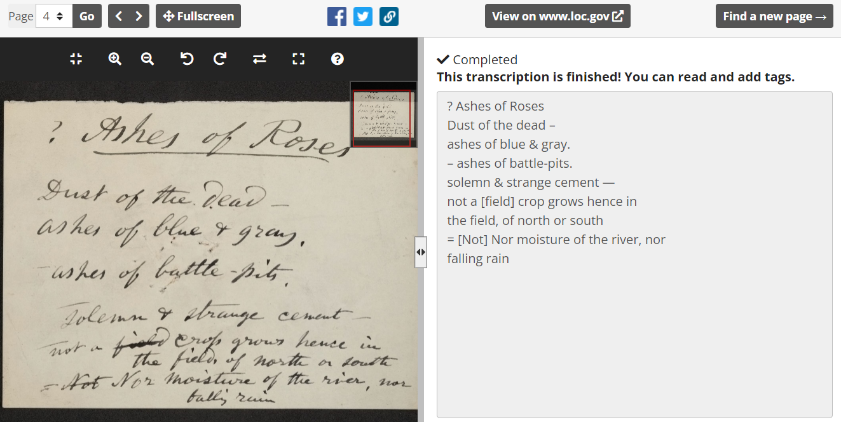 Page 4 Go Fullscreen View on www.loc.gov Find a new page →
? Ashes of Roses
Dust of the dead –
ashes of blue & gray.
– ashes of battle-pits.
solemn & strange cement —
not a field crop grows hence in
the field, of north or south
= Not Nor moisture of the river, nor
falling rain
Completed
This transcription is finished! You can read and add tags.
? Ashes of Roses
Dust of the dead –
ashes of blue & gray.
– ashes of battle-pits.
solemn & strange cement —
not a [field] crop grows hence in
the field, of north or south
= [Not] Nor moisture of the river, nor
falling rain